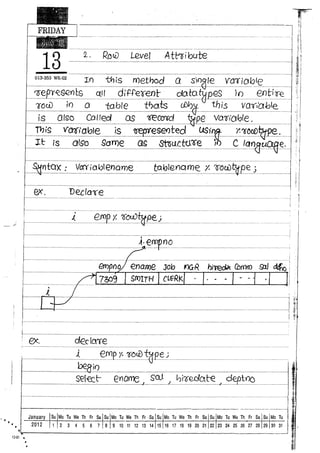 FRIDAY
13
013-353 WK-02
2. Row Level Attribute
In this method a single variable
represents all different datatypes in entire
row in a table thats why this variable
is also called as record type variable.
This variable is represented using %rowtype.
It is also same as structure in C language.
Syntax : Variablename tablename % rowtype ;
ex. Declare
i emp % rowtype ;
i.empno
empno ename Job MGR hiredate Comm sal dtno
7369 SMITH CLERK - - - - -
i
ex declare
i emp % rowtype ;
begin
select ename, sal, hiredate, deptno
January 2012
Su Mo Tu We Th Fr Sa Su Mo Tu We Th Fr Sa Su Mo Tu We Th Fr Sa Su Mo Tu We Th Fr Sa Su Mo Tu
1 2 3 4 5 6 7 8 9 10 11 12 13 14 15 16 17 18 19 20 21 22 23 24 25 26 27 28 29 30 31